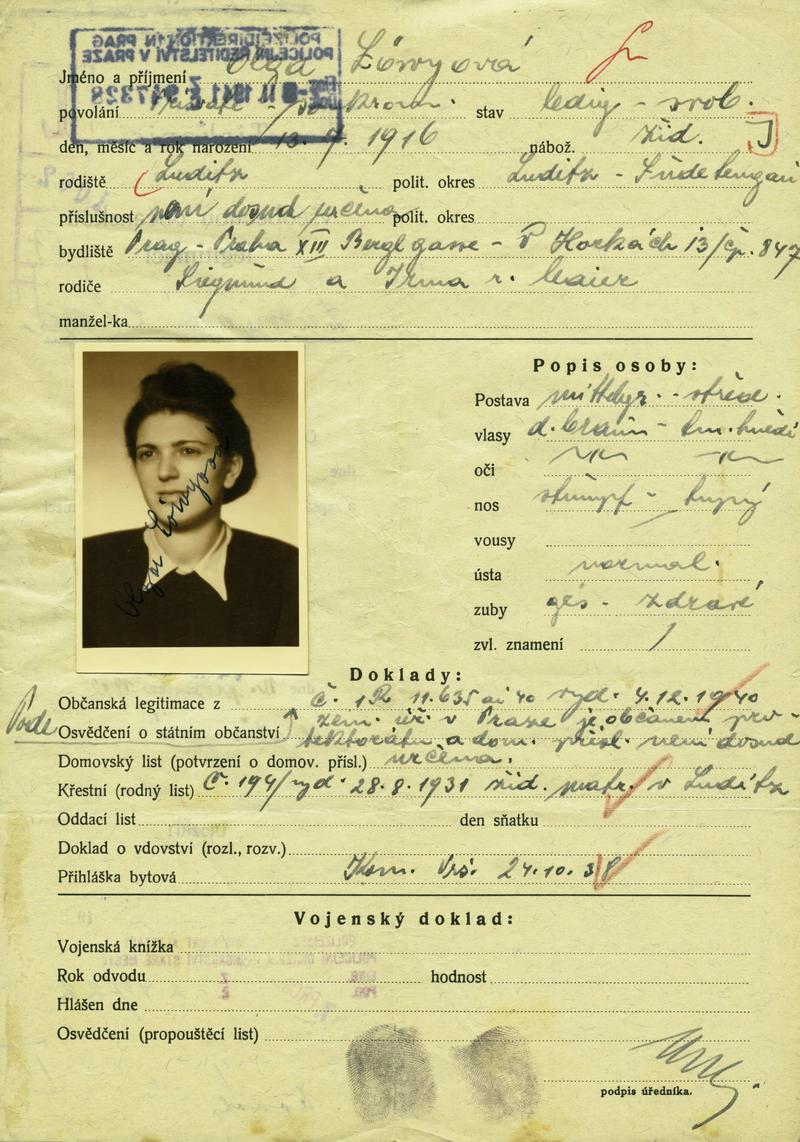 Jméno a příjmení Olga Löwyová
povolání Private - soukrom. stav ledig - svob.
den, měsíc a rok narození 13. 9. 1916 nábož. žid. J
rodiště Luditz polit. okres Luditz - Sudetengau
příslušnost není dosud určena polit. okres
bydliště Prag - Praha XIII Berglgasse - V Horkách 13/čp. 847
rodiče Siegmund a Irma r. Maier
manžel-ka
Olga Löwyová
Popis osoby:
Postava mittelgr. - střed.
vlasy d. braun - tm. hnědé
oči
nos stumpf - tupý
vousy
ústa normal.
zuby ges. - zdravé
zvl. znamení /
Doklady:
Občanská legitimace z č. 1R 11.635 ai 40 vyd. 4.12.1940
Podle
Osvědčení o státním občanství zem. úř. v Praze je občanem pro-
tektorátu a dom. přísl. není dosud
Domovský list (potvrzení o domov. přísl.) určena.
Křestní (rodný list) č. 194/vyd. 28.8.1931 žid. matr. v Luditz
Oddací list den sňatku
Doklad o vdovství (rozl., rozv.)
Přihláška bytová Kom. Vrš. 24.10.38
Vojenský doklad:
Vojenská knížka
Rok odvodu hodnost
Hlášen dne
Osvědčení (propouštěcí list)
podpis úředníka.